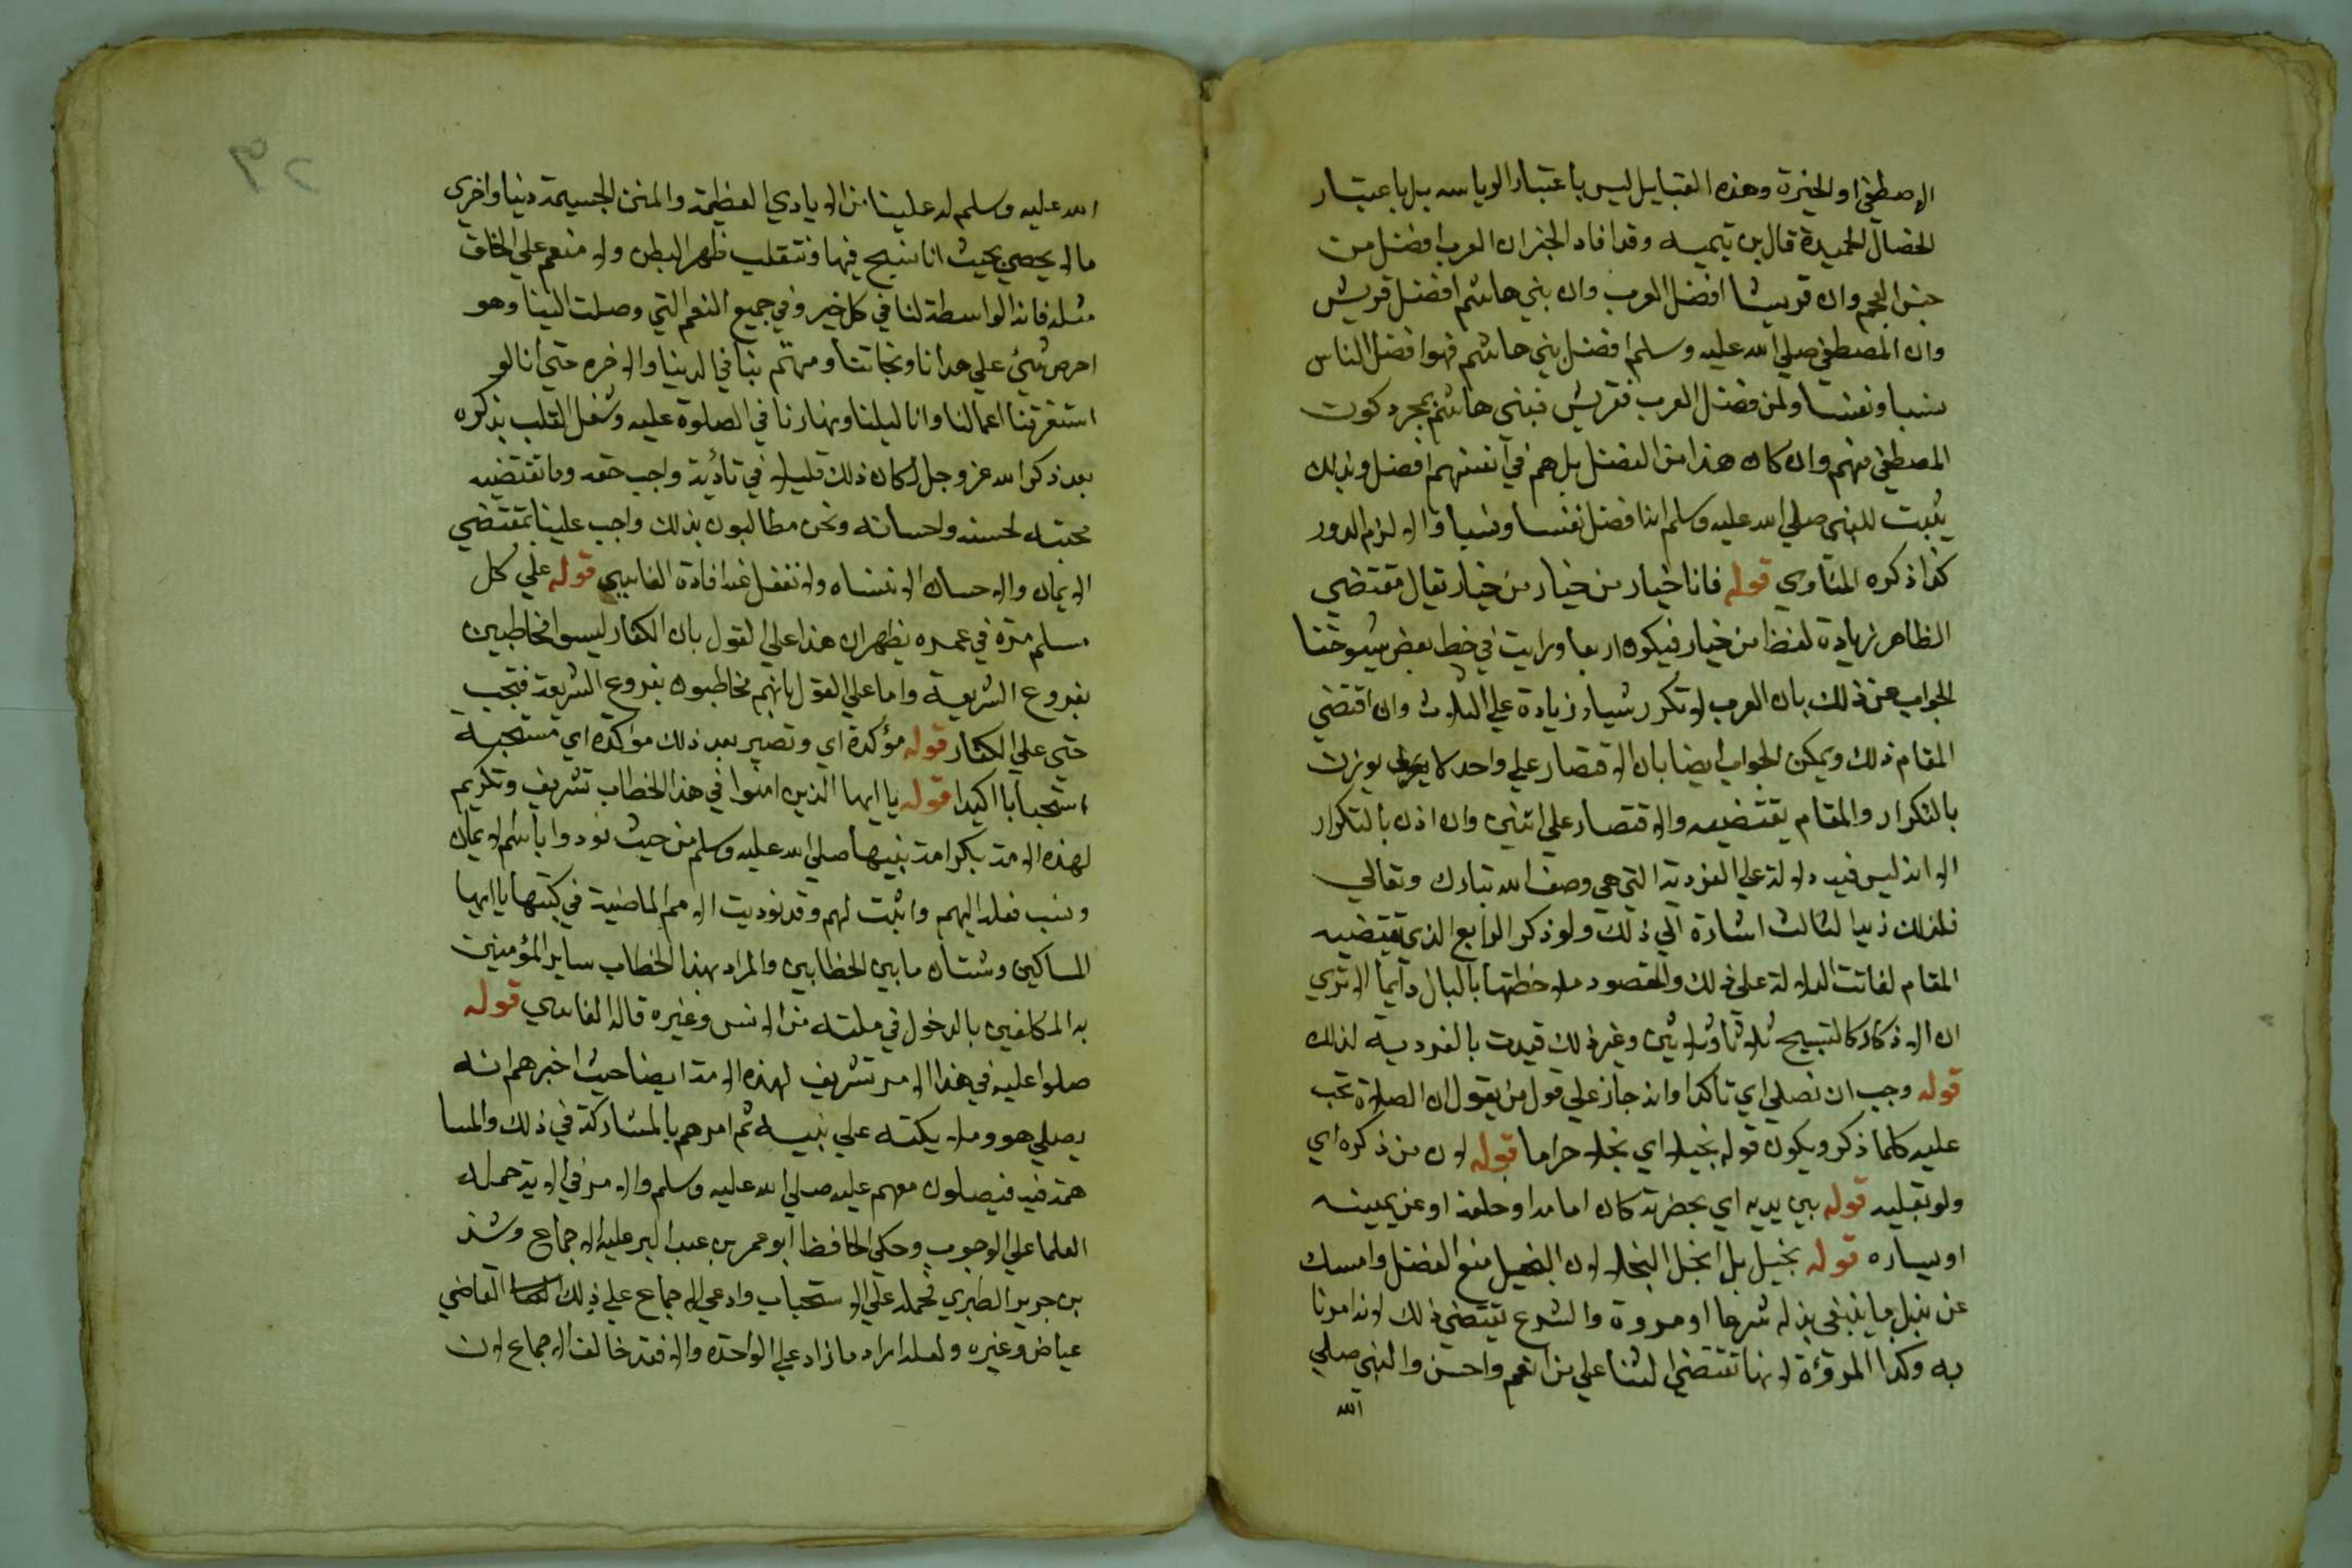 الاصطفا والخيرة وهذه القبايل ليس باعتبار الرياسه بل باعتبار
الخصال الحميدة قال بن تيميه وقد افاد الخبر ان العرب افضل من
جنس العجم وان قريشا افضل العرب وان بني هاشم افضل قريش
وان المصطفي صلي الله عليه وسلم افضل بني هاشم فهو افضل الناس
نسبا ونفسا وليس فضل العرب فقريش فبني هاشم بمجرد كون
المصطفي منهم وان كان هذا من الفضل بل هم في انفسهم افضل وبذلك
يثبت للنبي صلي الله عليه وسلم انه افضل نفسا ونسبا والا لزم الدور
كذا ذكره المناوي قوله فانا خيار من خيار من خيار يقال مقتضي
الظاهر زيادة لفظ من خيار فيكون اربعا ورايت في خط بعض شيوخنا
الجواب عن ذلك بان العرب لا تكرر شيا زيادة علي الثلاث وان اقتضي
المقام ذلك ويمكن الجواب ايضا بان الاقتصار علي واحد لا يوذن
بالتكرار والمقام يقتضيه والاقتصار علي اثنين وان اذن بالتكرار
الا انه ليس فيه دلالة علي الفردية التي هي وصف الله تبارك وتعالي
فلذلك زيد الثالث اشارة الي ذلك ولو ذكر الرابع الذي يقتضيه
المقام لفاتت الدلالة علي ذلك والمقصود ملاحظتها بالبال دايما الا تري
ان الاذكار كالتسبيح ثلاثا وثلاثين وغير ذلك قيدت بالفرديه لذلك
قوله وجب ان نصلي اي تاكدا وانه جاز علي قول من يقول ان الصلاة تجب
عليه كلما ذكر ويكون قوله بخيلا اي بخلا حراما قوله لان من ذكره اي
ولو بقلبه قوله بين يديه اي بحضرته كان امامه او خلفه او عن يمينه
او يساره قوله بخيل بل ابخل البخلا لان البخيل منع الفضل وامسك
عن بذل ما ينبغي بذله شرعا او مروة والشرع يقتضي ذلك لانه امرنا
به وكذا المروؤة لانها تقتضي الثنا علي من انعم واحسن والنبي صلي
الله
٣٢
الله عليه وسلم له علينا من الايادي العظيمة والمنن الجسيمة دنيا واخري
ما لا يحصي بحيث انا نسبح فيها ونتقلب ظهر البطن ولا منعم علي الخلق
مثله فانه الواسطة لنا في كل خير وفي جميع النعم التي وصلت الينا وهو
احرص شئ علي هدانا ونجاتنا ومهتم بنا في الدنيا والاخره حتي انا لو
استغرقنا اعمالنا وانا ليلنا ونهارنا في الصلوة عليه وشغل القلب بذكره
بعد ذكر الله عز وجل لكان ذلك قليلا في تأدية واجب حقه وما تقتضيه
محبته لحسنه واحسانه ونحن مطالبون بذلك واجب علينا بمقتضي
الايمان والاحسان لا ننساه ولا نغفل عنه افادة الفاسي قوله علي كل
مسلم مرة في عمره يظهر ان هذا علي القول بان الكفار ليسوا مخاطبين
بفروع الشريعة واما علي القول بانهم مخاطبون بفروع الشريعة فتجب
حتي علي الكفار قوله مؤكدة اي وتصير بعد ذلك مؤكدة اي مستحبة
استحبابا اكيدا قوله يا ايها الذين امنوا في هذا الخطاب تشريف وتكريم
لهذه الامة بكرامة نبيها صلي الله عليه وسلم من حيث نودوا باسم الايمان
ونسب فعله اليهم واثبت لهم وقد نوديت الامم الماضية في كتبها يا ايها
المساكين وشتان ما بين الخطابين والمراد بهذا الخطاب ساير المؤمنين
به المكلفين بالدخول في ملته من الانس وغيره قاله الفاسي قوله
صلوا عليه في هذا الامر تشريف لهذه الامة ايضا حيث اخبرهم انه
يصلي هو وملايكته علي نبيه ثم امرهم بالمشاركة في ذلك والمسا
همة فيه فيصلون معهم عليه صلي الله عليه وسلم والامر في الاية حمله
العلما علي الوجوب وحكي الحافظ ابو عمر بن عبد البر عليه الاجماع وشذ
بن جرير الطبري فحمله علي الاستحباب وادعي الاجماع علي ذلك القاضي
عياض وغيره ولعله اراد ما زاد علي الواحدة والا فقد خالف الاجماع لان